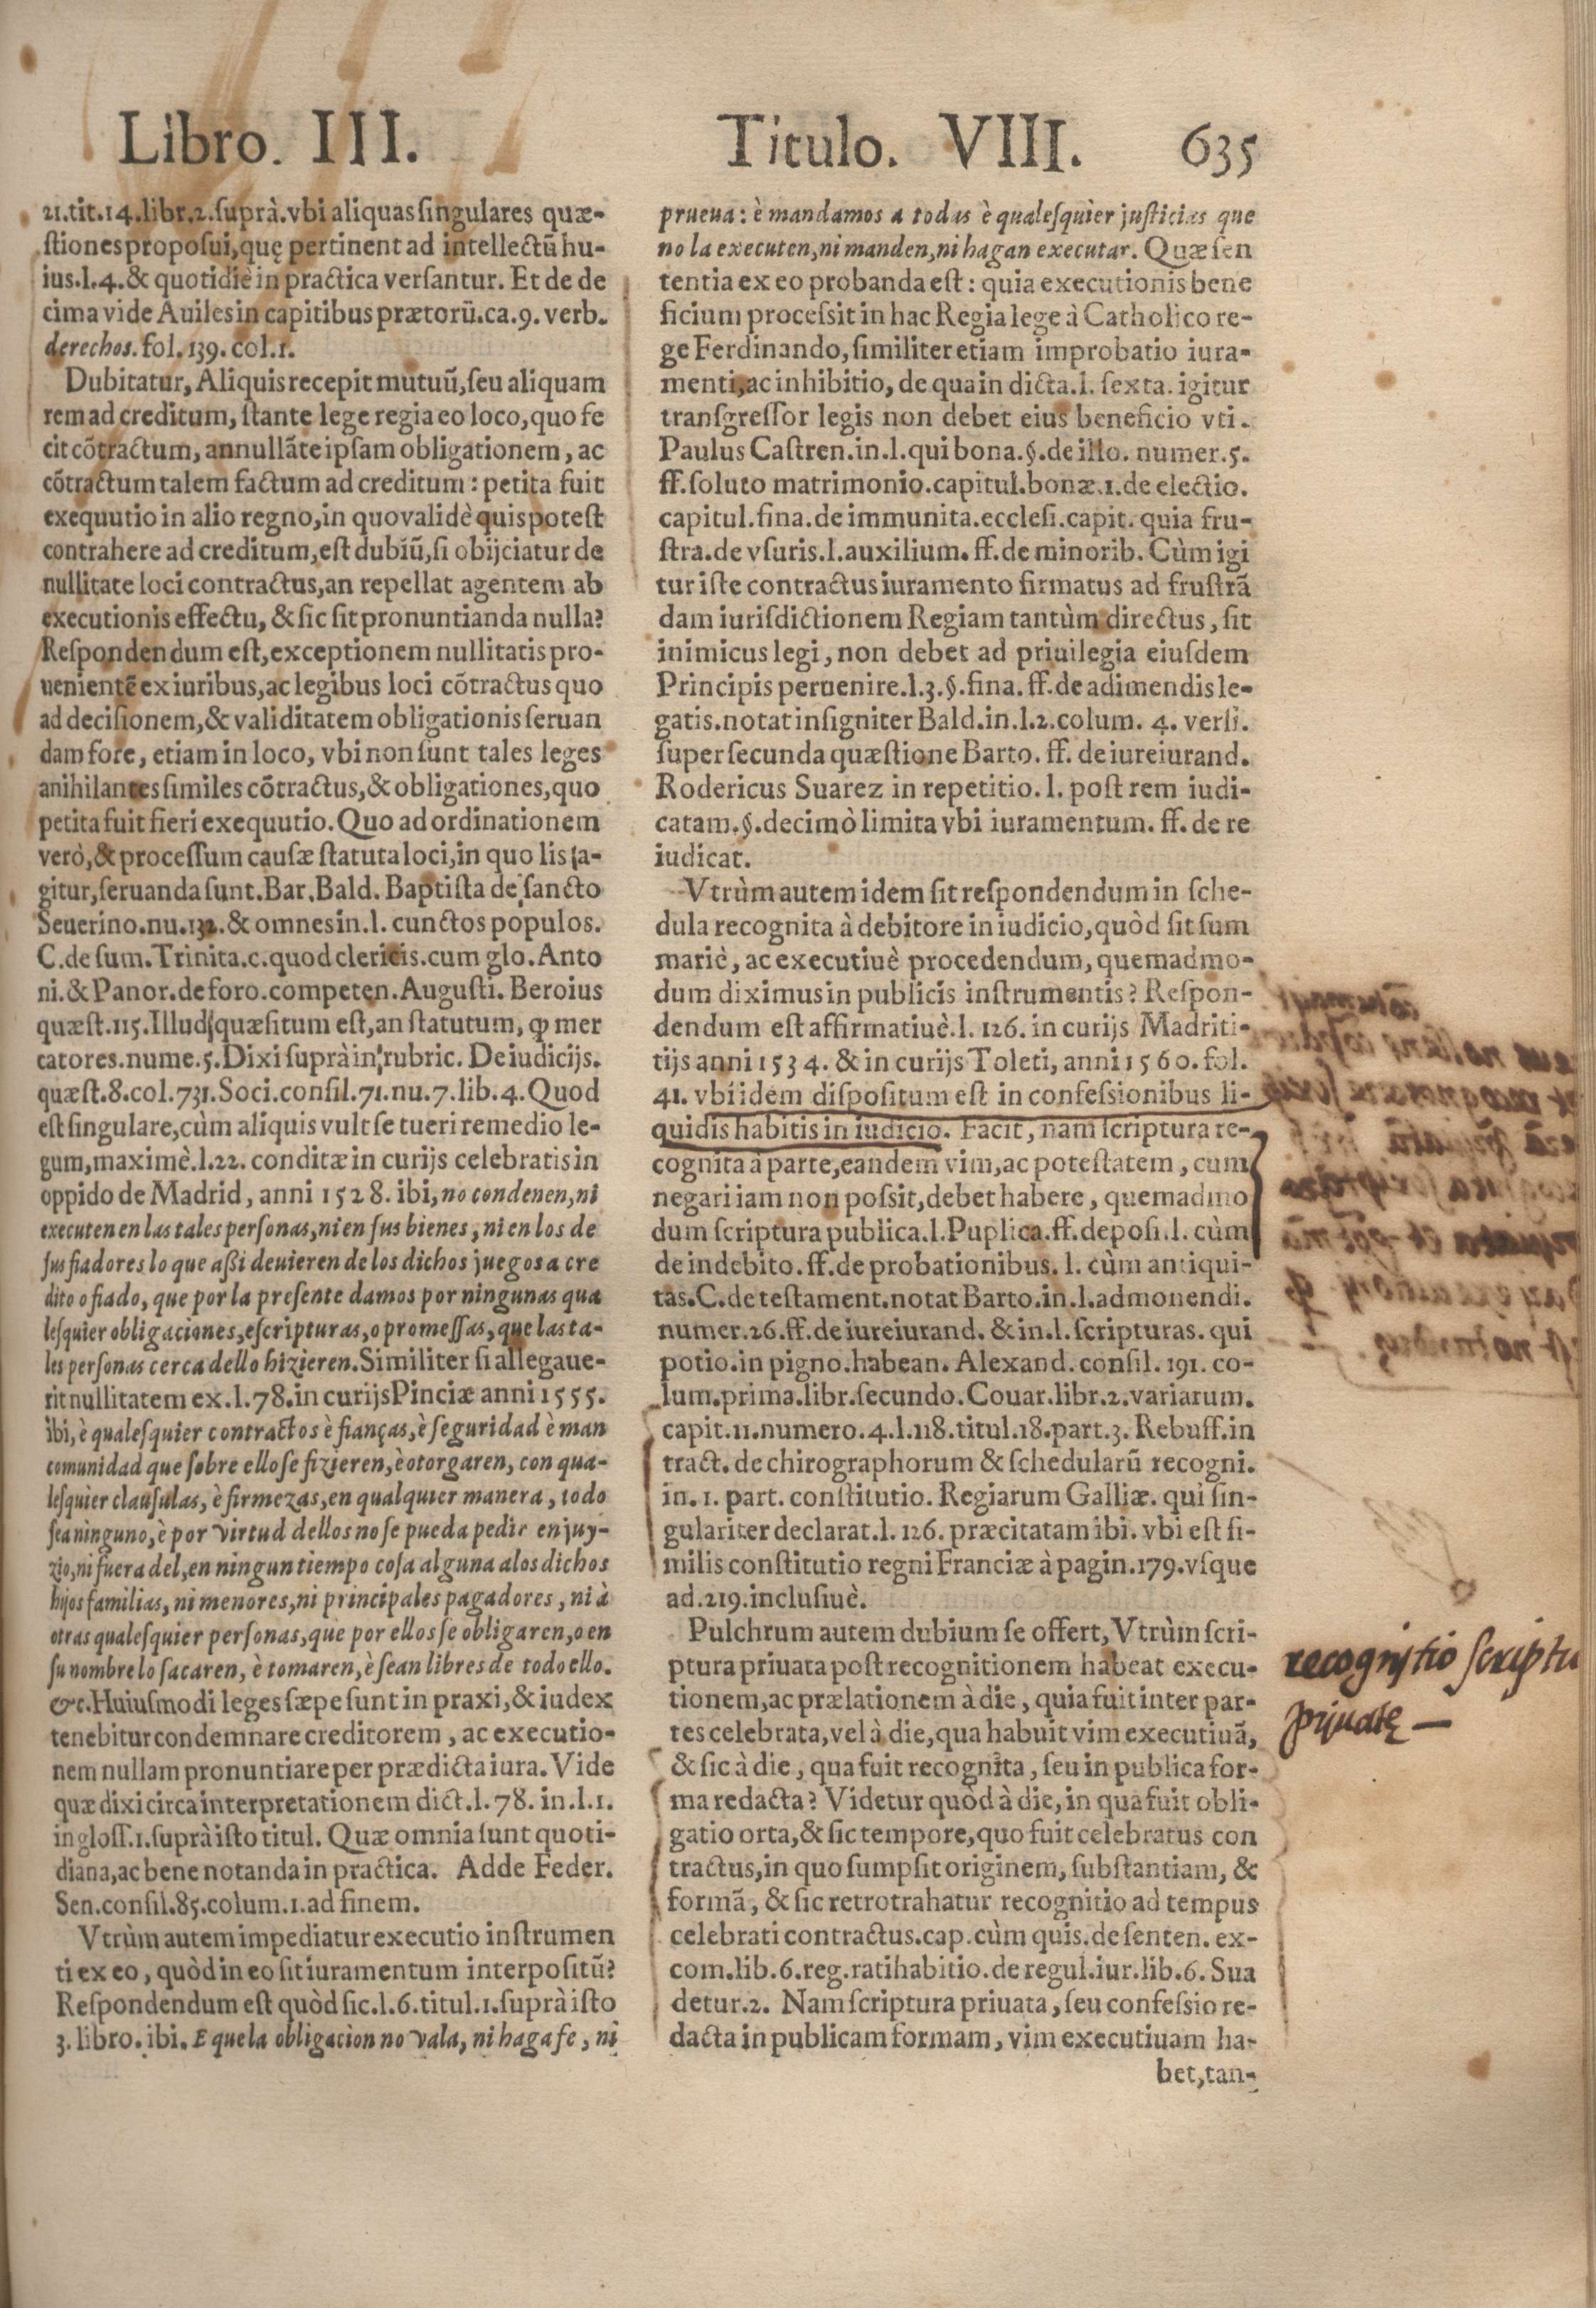 Libro. III.
Titulo. VIII. 635
21.tit.14.libr.2.suprà.vbi aliquas singulares quæ-
stiones proposui, quę pertinent ad intellectũ hu-
ius.l.4.& quotidiè in practica versantur. Et de de
cima vide Auiles in capitibus prætorũ.ca.9. verb.
derechos. fol.139. col.1.
Dubitatur, Aliquis recepit mutuũ, seu aliquam
rem ad creditum, stante lege regia eo loco, quo fe
cit cõtractum, annullãte ipsam obligationem, ac
cõtractum talem factum ad creditum: petita fuit
exequutio in alio regno, in quo validè quis potest
contrahere ad creditum, est dubiũ, si obijciatur de
nullitate loci contractus, an repellat agentem ab
executionis effectu, & sic sit pronuntianda nulla?
Respondendum est, exceptionem nullitatis pro-
uenientẽ ex iuribus, ac legibus loci cõtractus quo
ad decisionem, & validitatem obligationis seruan
dam fore, etiam in loco, vbi non sunt tales leges
anihilantes similes cõtractus, & obligationes, quo
petita fuit fieri exequutio. Quo ad ordinationem
verò, & processum causæ statuta loci, in quo lis a-
gitur, seruanda sunt. Bar. Bald. Baptista de sancto
Seuerino.nu.132.& omnes in.l. cunctos populos.
C.de sum. Trinita.c.quod clericis.cum glo. Anto
ni.& Panor.de foro.competen. Augusti. Beroius
quæst.115. Illud quæsitum est, an statutum, ꝙ mer
catores.nume.5. Dixi suprà in rubric. De iudicijs.
quæst.8.col.731. Soci.consil.71.nu.7.lib.4. Quod
est singulare, cùm aliquis vult se tueri remedio le-
gum, maximè.l.22. conditæ in curijs celebratis in
oppido de Madrid, anni 1528. ibi, no condenen, ni
executen en las tales personas, ni en sus bienes, ni en los de
sus fiadores lo que assi deuieren de los dichos juegos a cre
dito o fiado, que por la presente damos por ningunas qua
lesquier obligaciones, escripturas, o promessas, que las ta-
les personas cerca dello hizieren. Similiter si allegaue-
rit nullitatem ex.l.78. in curijs Pinciæ anni 1555.
ibi, è qualesquier contractos è fianças, è seguridad è man
comunidad que sobre ello se fizieren, è otorgaren, con qua-
lesquier clausulas, è firmezas, en qualquier manera, todo
sea ninguno, è por virtud dellos no se pueda pedir en juy-
zio, ni fuera del, en ningun tiempo cosa alguna a los dichos
hijos familias, ni menores, ni principales pagadores, ni à
otras qualesquier personas, que por ellos se obligaren, o en
su nombre lo sacaren, è tomaren, è sean libres de todo ello.
&c. Huiusmodi leges sæpe sunt in praxi, & iudex
tenebitur condemnare creditorem, ac executio-
nem nullam pronuntiare per prædicta iura. Vide
quæ dixi circa interpretationem dict.l.78. in.l.1.
in gloss.1.suprà isto titul. Quæ omnia sunt quoti-
diana, ac bene notanda in practica. Adde Feder.
Sen.consil.85.colum.1.ad finem.
Vtrùm autem impediatur executio instrumen
ti ex eo, quòd in eo sit iuramentum interpositũ?
Respondendum est quòd sic.l.6.titul.1.suprà isto
3.libro.ibi. E que la obligacion no vala, ni haga fe, ni
prueua: è mandamos a todas è qualesquier justicias que
no la executen, ni manden, ni hagan executar. Quæ sen
tentia ex eo probanda est: quia executionis bene
ficium processit in hac Regia lege à Catholico re-
ge Ferdinando, similiter etiam improbatio iura-
menti, ac inhibitio, de qua in dicta.l. sexta. igitur
transgressor legis non debet eius beneficio vti.
Paulus Castren.in.l.qui bona.§.de illo. numer.5.
ff.soluto matrimonio.capitul.bonæ.1.de electio.
capitul.fina.de immunita.ecclesi.capit. quia fru-
stra.de vsuris.l.auxilium. ff.de minorib. Cùm igi
tur iste contractus iuramento firmatus ad frustrã
dam iurisdictionem Regiam tantùm directus, sit
inimicus legi, non debet ad priuilegia eiusdem
Principis peruenire.l.3.§.fina. ff.de adimendis le-
gatis.notat insigniter Bald.in.l.2.colum. 4. versi.
super secunda quæstione Barto. ff. de iureiurand.
Rodericus Suarez in repetitio.l. post rem iudi-
catam.§.decimò limita vbi iuramentum. ff. de re
iudicat.
Vtrùm autem idem sit respondendum in sche-
dula recognita à debitore in iudicio, quòd sit sum
mariè, ac executiuè procedendum, quemadmo-
dum diximus in publicis instrumentis? Respon-
dendum est affirmatiuè.l. 126. in curijs Madriti-
tijs anni 1534. & in curijs Toleti, anni 1560. fol.
41. vbi idem dispositum est in confessionibus li-
quidis habitis in iudicio. Facit, nam scriptura re-
cognita à parte, eandem vim, ac potestatem, cum
negari iam non possit, debet habere, quemadmo
dum scriptura publica.l.Puplica.ff.deposi.l. cùm
de indebito. ff.de probationibus. l. cùm antiqui-
tas.C.de testament.notat Barto.in.l.admonendi.
numer.26.ff.de iureiurand. & in.l. scripturas. qui
potio.in pigno.habean. Alexand. consil. 191. co-
lum.prima.libr.secundo. Couar.libr.2.variarum.
capit.11.numero.4.l.118.titul.18.part.3. Rebuff.in
tract. de chirographorum & schedularũ recogni.
in.1. part. constitutio. Regiarum Galliæ. qui sin-
gulariter declarat.l. 126. præcitatam ibi. vbi est si-
milis constitutio regni Franciæ à pagin.179.vsque
ad.219.inclusiuè.
Pulchrum autem dubium se offert, Vtrùm scri-
ptura priuata post recognitionem habeat execu-
tionem, ac prælationem à die, quia fuit inter par-
tes celebrata, vel à die, qua habuit vim executiuã,
& sic à die, qua fuit recognita, seu in publica for-
ma redacta? Videtur quòd à die, in qua fuit obli-
gatio orta, & sic tempore, quo fuit celebratus con
tractus, in quo sumpsit originem, substantiam, &
formã, & sic retrotrahatur recognitio ad tempus
celebrati contractus.cap.cùm quis.de senten. ex-
com.lib.6.reg.ratihabitio.de regul.iur.lib.6. Sua
detur.2. Nam scriptura priuata, seu confessio re-
dacta in publicam formam, vim executiuam ha-
bet, tan-
recognitio scriptu
priuatę —